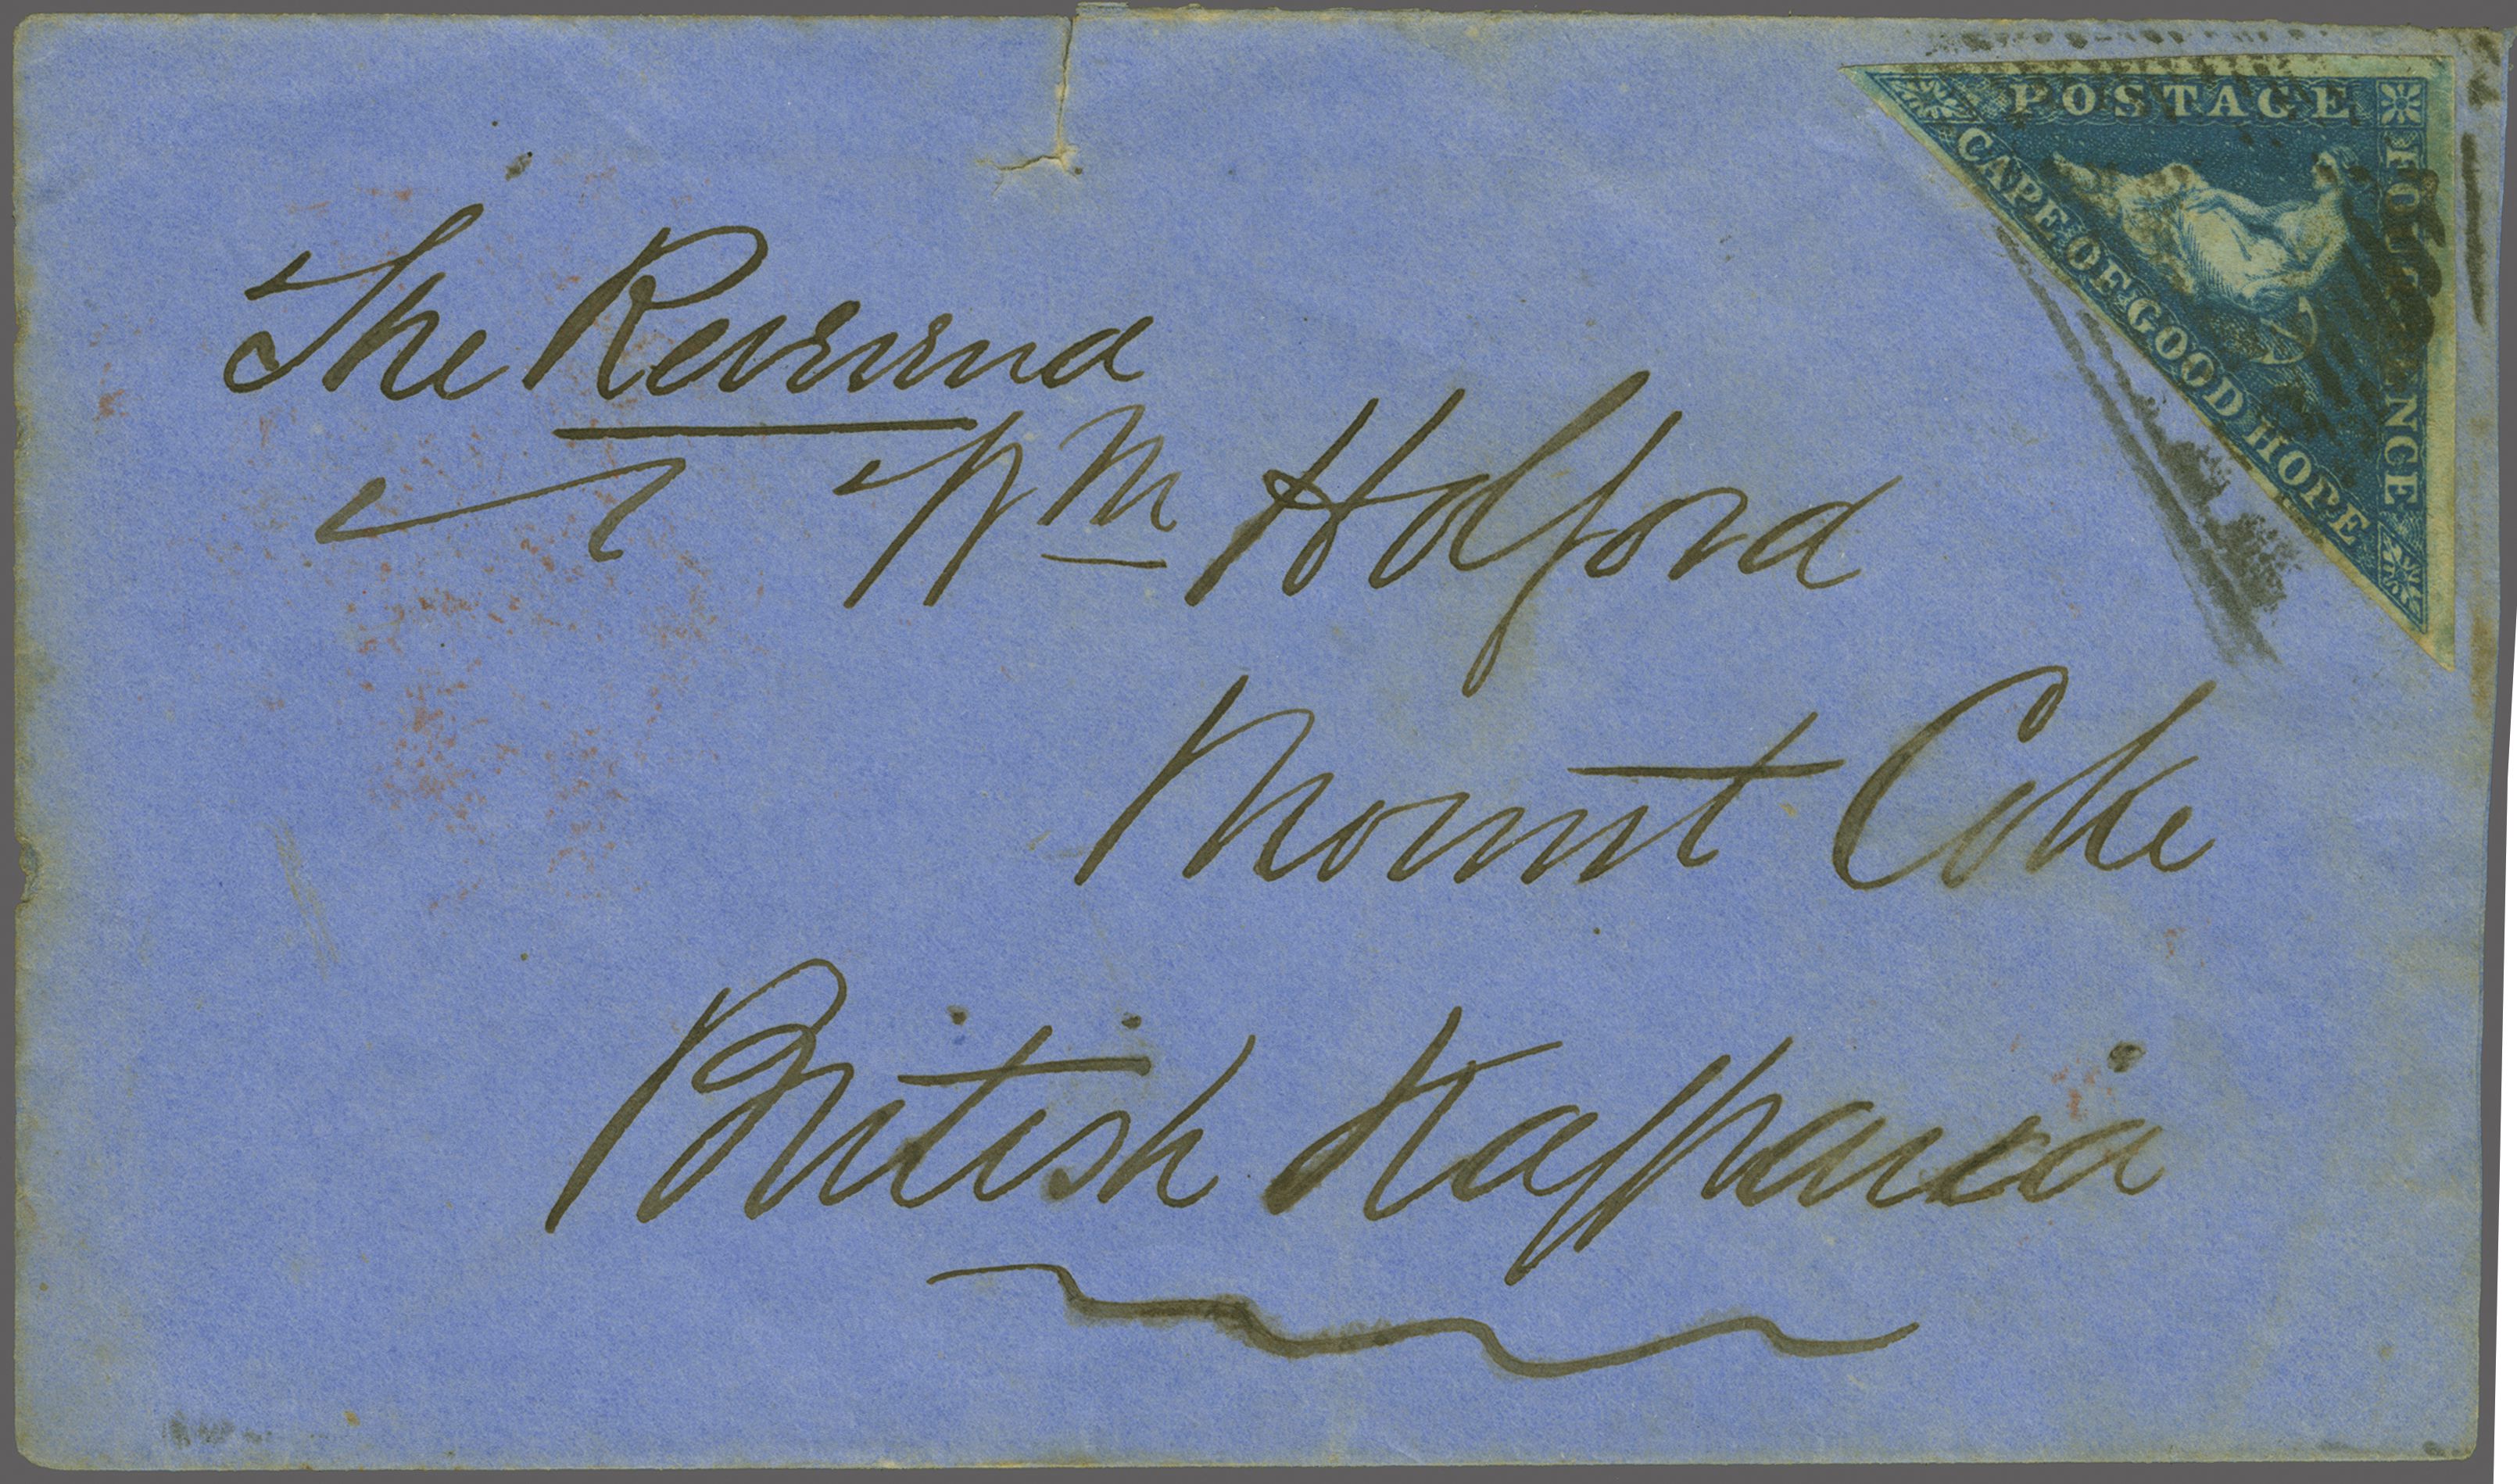 POSTAGE
FOUR PENCE
CAPE OF GOOD HOPE
The Reverend
Wm Holford
Mount Coke
British Kaffraria